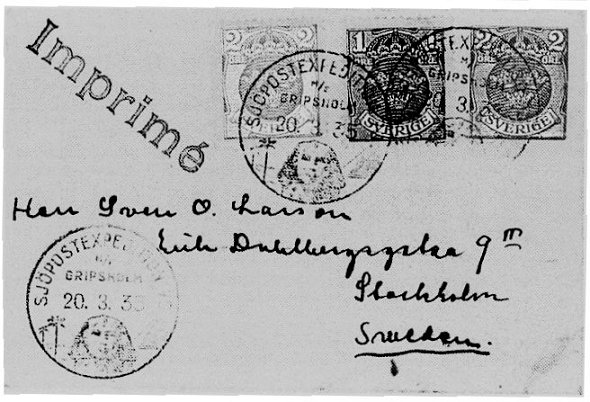 Imprimé
2 2
ÖRE
1
SVERIGE
2 2
ÖRE ÖRE
SVERIGE
SJÖPOSTEXPEDIT
M/S
GRIPSHOLM
20. 3. 35
UTEX
M/
GRIPSHO
0. 3.
Herr Sven O. Larson
Erik Dahlbergsgatan 9 III
Stockholm
Sweden.
SJÖPOSTEXPEDITION
M/S
GRIPSHOLM
20. 3. 35